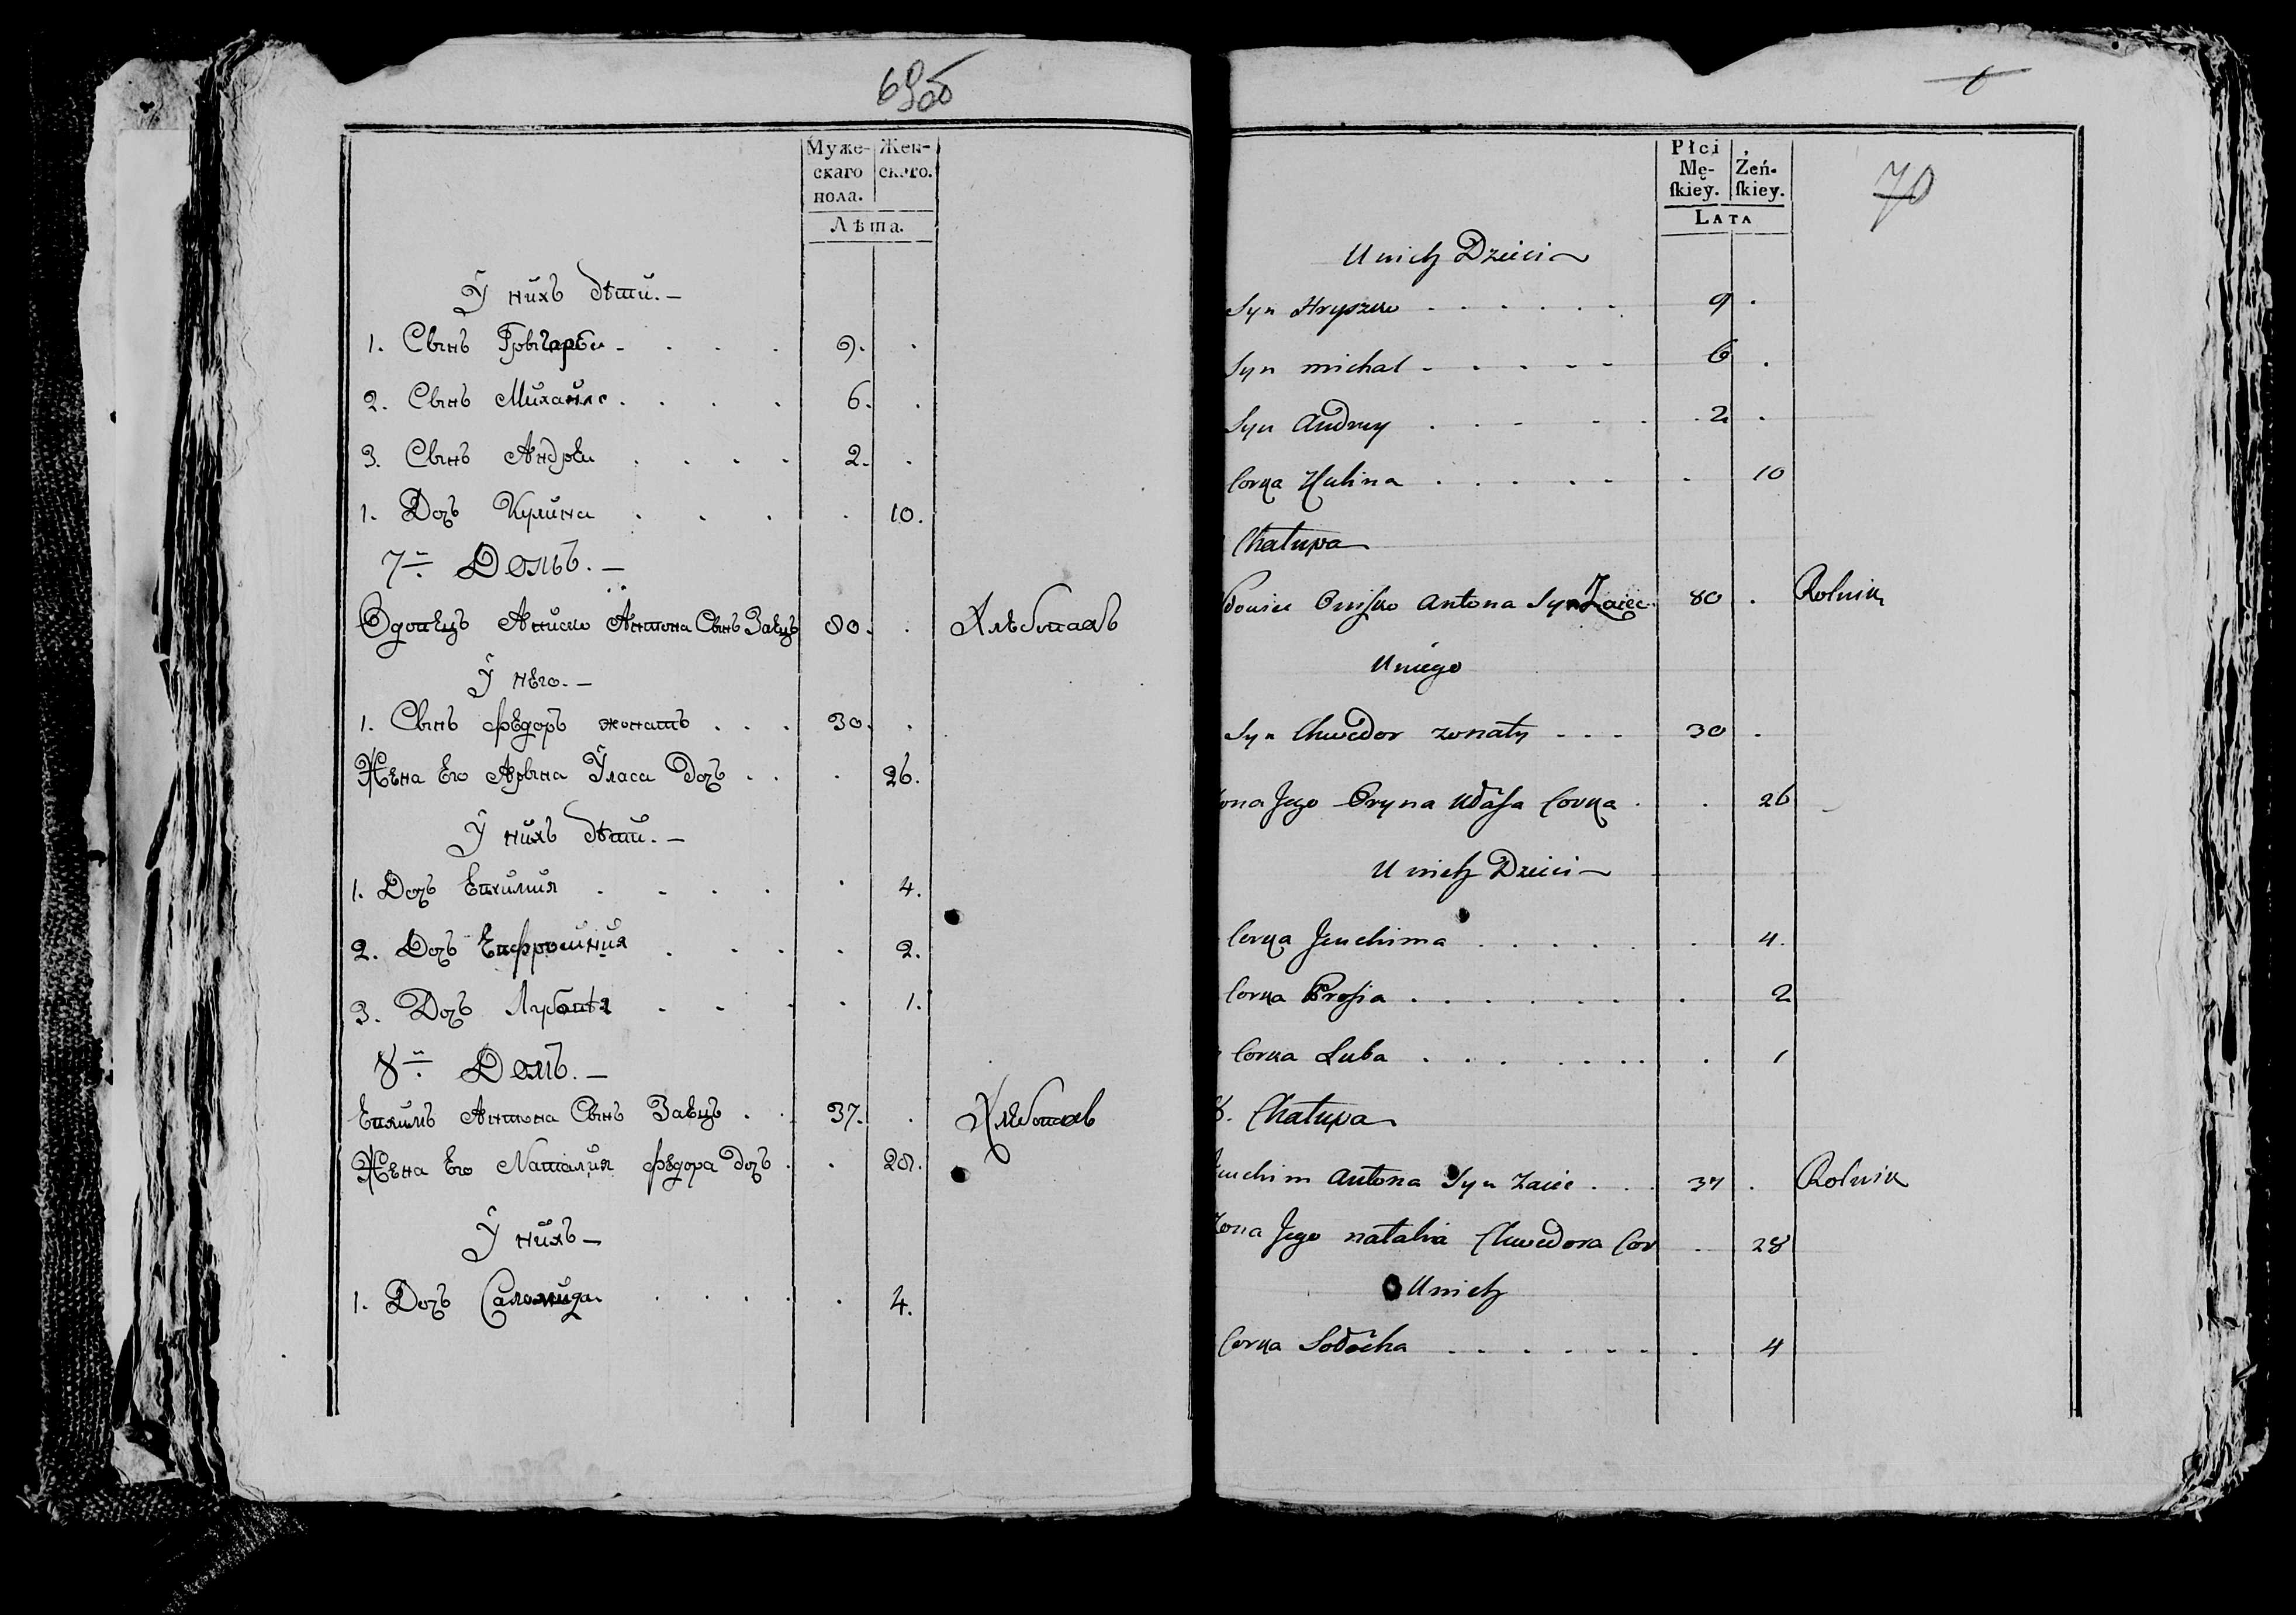 69об
Муже-
скаго
пола.
Жен-
скаго.
Лѣта.
У нихъ дѣти. —
1. Сынъ . . . . 9. .
2. Сынъ Михайло . . . . 6. .
3. Сынъ Андрей . . . . 2. .
1. Доч Кулина . . . . 10.
7й Домъ. —
Вдовецъ Аниско Антона Сынъ Заецъ 80. . Хлѣбопаш
У него. —
1. Сынъ Федоръ жонатъ . . . 30. .
Жена Его Арына Уласа Доч . . . 26.
У нихъ дѣти. —
1. Доч . . . . . 4.
2. Доч . . . . 2.
3. Доч . . . . 1.
8й Домъ. —
Евхимъ Антона Сынъ Заецъ . . 37. . Хлѣбопаш
Жена Его Наталия Федора Доч . . 28.
У нихъ —
1. Доч . . . . . 4.
70
Płci
Mę-
ſkiey.
Żeń-
ſkiey.
LATA
U nich Dzieci
Syn Hryszko . . . . . . 9 .
Syn michał . . . . . 6 .
Syn Andrey . . . . . . 2 .
Corka Kulina . . . . . . 10
Chałupa
Onisko Antona Syn Zaiec . 80 . Rolnik
U niego
Syn Chwedor zonaty . . . 30 .
ona Jego Oryna Ułasa Corka . . 26
U nich Dzieci
Corka Jeuchima . . . . . . 4.
Corka Prosia . . . . . . . 2
Corka Luba . . . . . . . 1
8. Chałupa
euchim Antona Syn Zaiec . . . 37 . Rolnik
Zona Jego natalia Chwedora Cor . 28
U nich
Corka Sołocha . . . . . . . 4